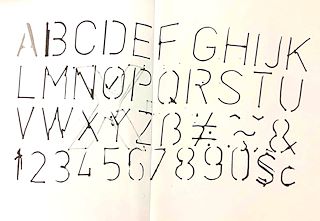 ABCDEF GHIJK
LMNØPQRSTU
VWXYZß≠~&
1234567890$c